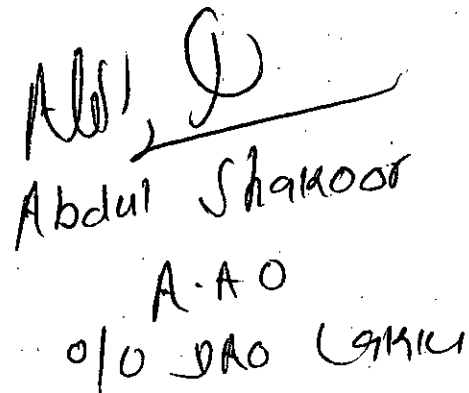 Abdul Shakoor
A.AO
O/O DAO Lakki